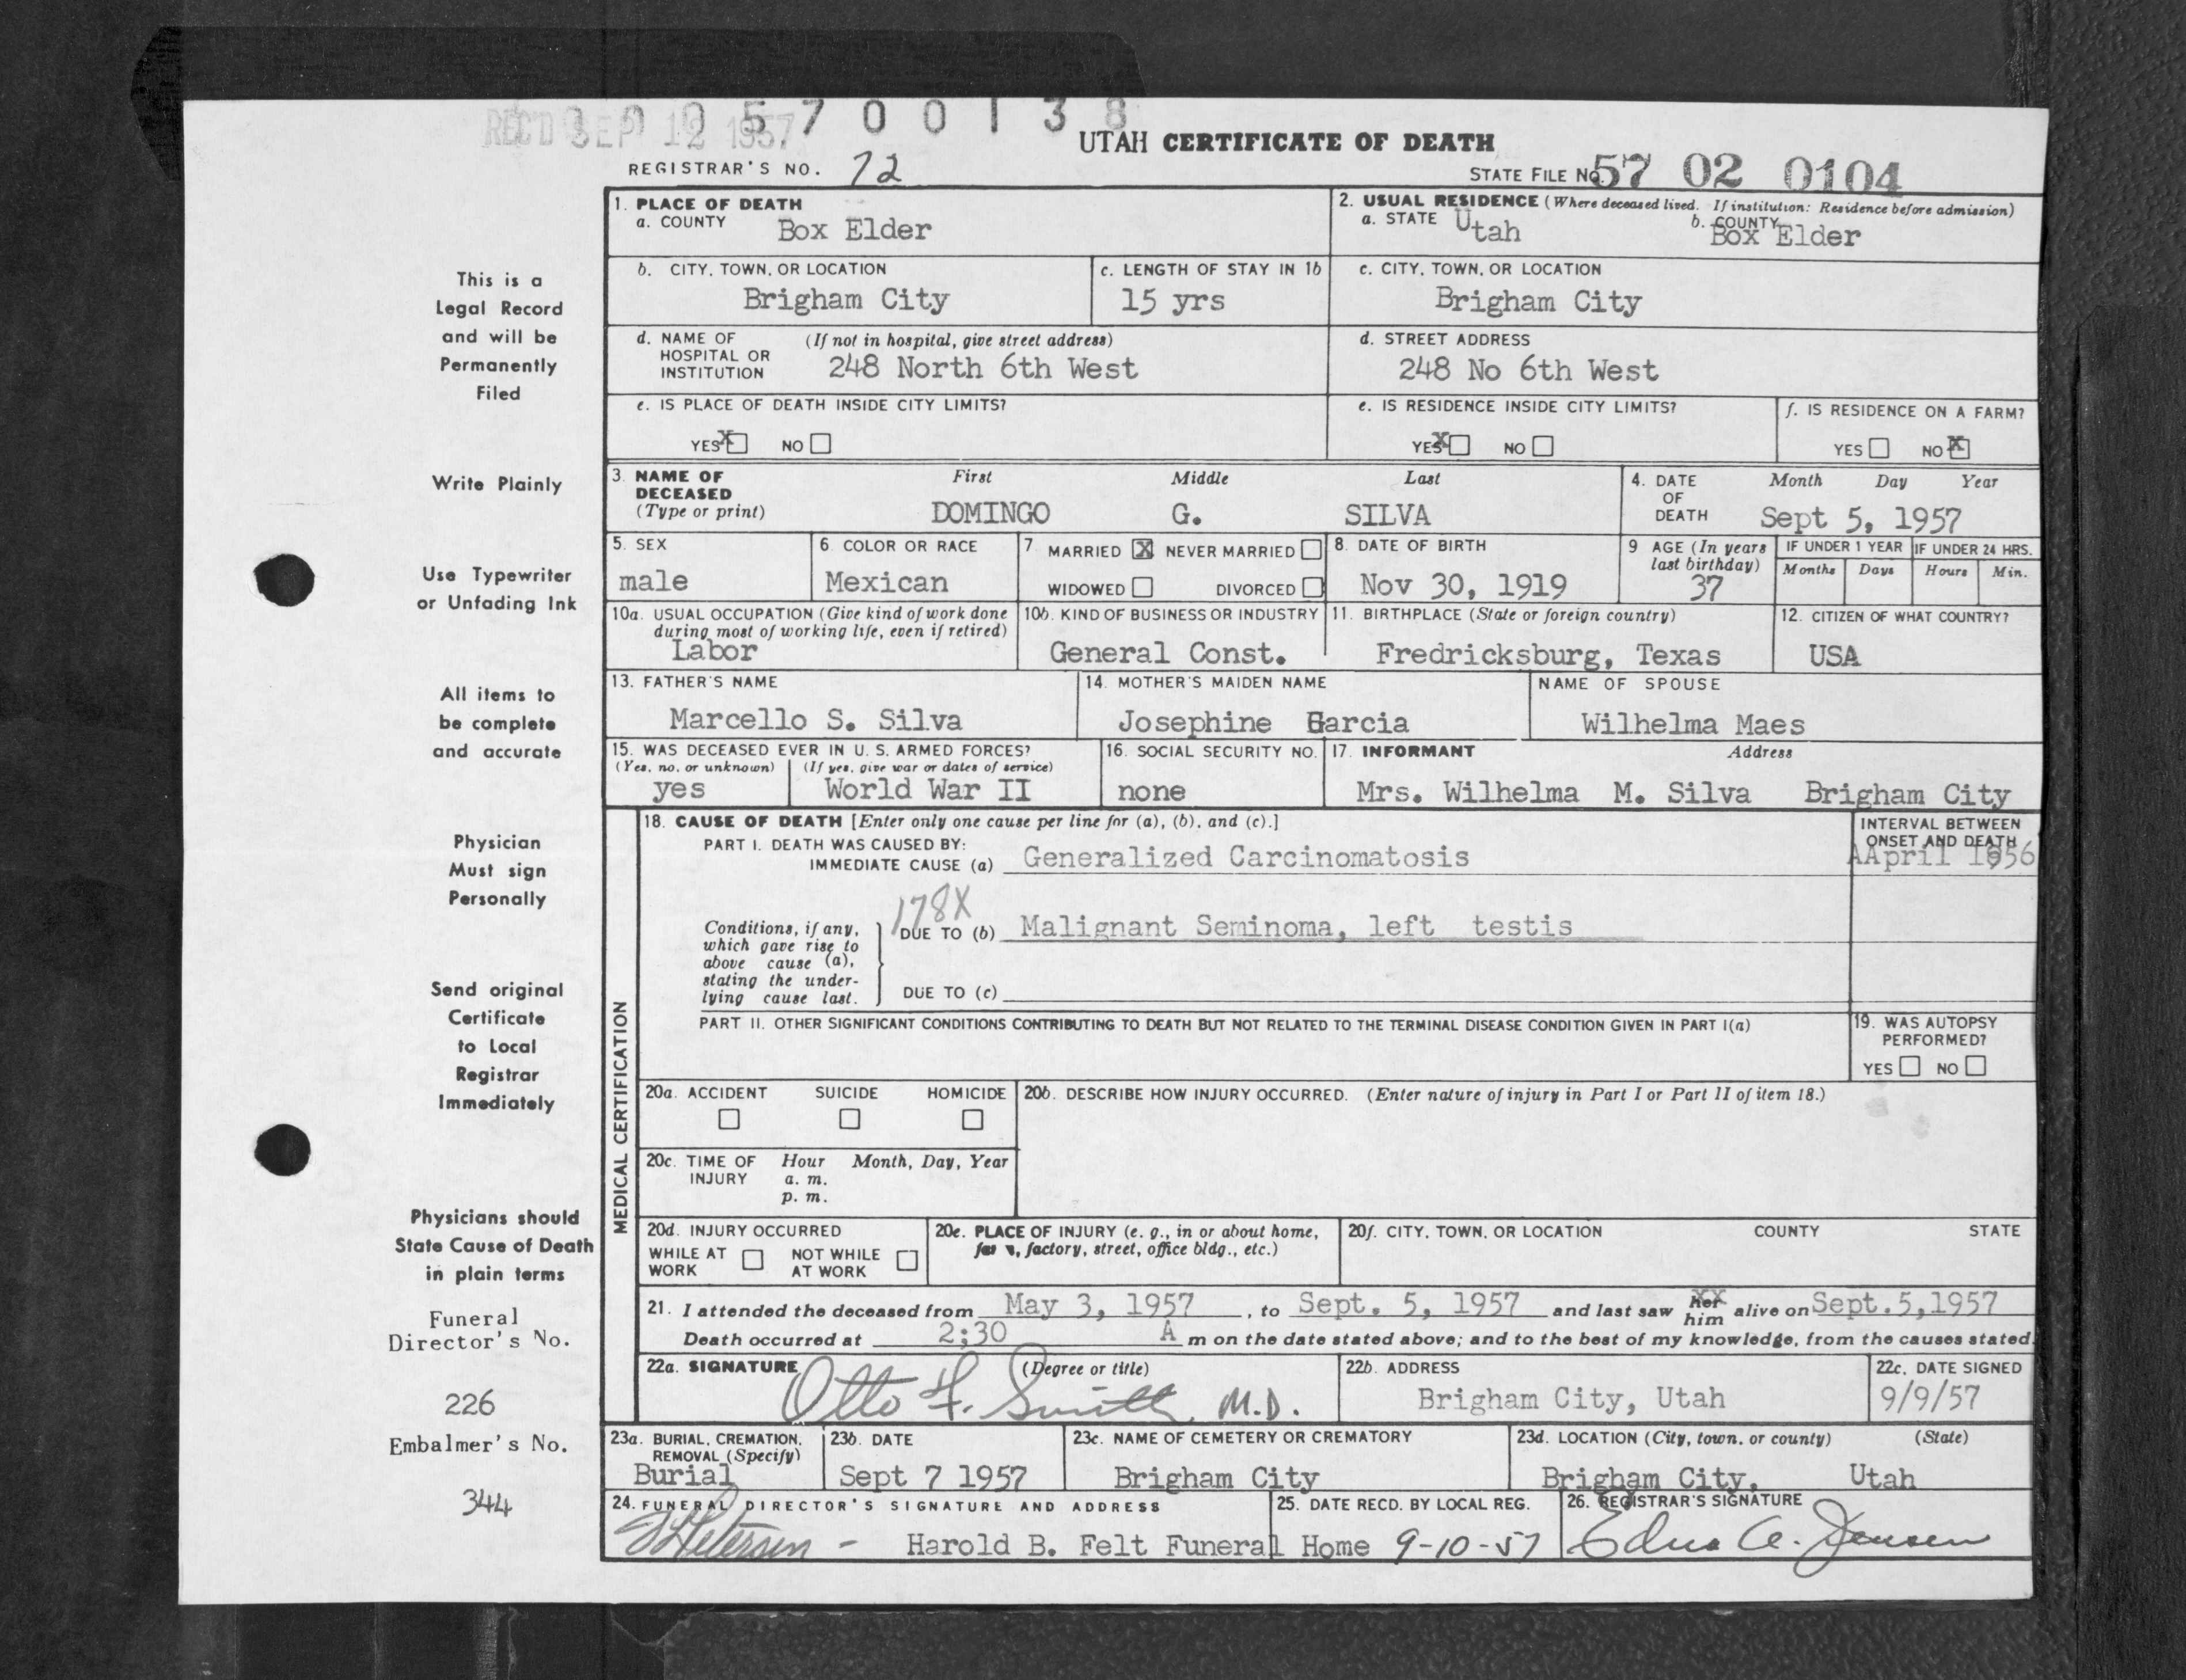 REC'D SEP 12 1957
5 7 0 0 1 3 8
UTAH CERTIFICATE OF DEATH
REGISTRAR'S NO. 72
STATE FILE No. 57 02 0104
This is a
Legal Record
and will be
Permanently
Filed
Write Plainly
Use Typewriter
or Unfading Ink
All items to
be complete
and accurate
Physician
Must sign
Personally
Send original
Certificate
to Local
Registrar
Immediately
Physicians should
State Cause of Death
in plain terms
Funeral
Director's No.
226
Embalmer's No.
344
1. PLACE OF DEATH
a. COUNTY Box Elder
2. USUAL RESIDENCE (Where deceased lived. If institution: Residence before admission)
a. STATE Utah b. COUNTY Box Elder
b. CITY, TOWN, OR LOCATION
Brigham City
c. LENGTH OF STAY IN 1b
15 yrs
c. CITY, TOWN, OR LOCATION
Brigham City
d. NAME OF (If not in hospital, give street address)
HOSPITAL OR
INSTITUTION 248 North 6th West
d. STREET ADDRESS
248 No 6th West
e. IS PLACE OF DEATH INSIDE CITY LIMITS?
YES X NO
e. IS RESIDENCE INSIDE CITY LIMITS?
YES X NO
f. IS RESIDENCE ON A FARM?
YES NO X
3. NAME OF First Middle Last
DECEASED
(Type or print) DOMINGO G. SILVA
4. DATE Month Day Year
OF
DEATH Sept 5, 1957
5. SEX
male
6 COLOR OR RACE
Mexican
7 MARRIED X NEVER MARRIED
WIDOWED DIVORCED
8. DATE OF BIRTH
Nov 30, 1919
9 AGE (In years
last birthday)
37
IF UNDER 1 YEAR IF UNDER 24 HRS.
Months Days Hours Min.
10a. USUAL OCCUPATION (Give kind of work done
during most of working life, even if retired)
Labor
10b. KIND OF BUSINESS OR INDUSTRY
General Const.
11. BIRTHPLACE (State or foreign country)
Fredricksburg, Texas
12. CITIZEN OF WHAT COUNTRY?
USA
13. FATHER'S NAME
Marcello S. Silva
14. MOTHER'S MAIDEN NAME
Josephine Garcia
NAME OF SPOUSE
Wilhelma Maes
15. WAS DECEASED EVER IN U. S. ARMED FORCES?
(Yes, no, or unknown) (If yes, give war or dates of service)
yes World War II
16. SOCIAL SECURITY NO.
none
17. INFORMANT Address
Mrs. Wilhelma M. Silva Brigham City
MEDICAL CERTIFICATION
18. CAUSE OF DEATH [Enter only one cause per line for (a), (b), and (c).]
PART I. DEATH WAS CAUSED BY:
IMMEDIATE CAUSE (a) Generalized Carcinomatosis
INTERVAL BETWEEN
ONSET AND DEATH
AApril 1956
178X
Conditions, if any,
which gave rise to
above cause (a),
stating the under-
lying cause last.
DUE TO (b) Malignant Seminoma, left testis
DUE TO (c)
PART II. OTHER SIGNIFICANT CONDITIONS CONTRIBUTING TO DEATH BUT NOT RELATED TO THE TERMINAL DISEASE CONDITION GIVEN IN PART I(a)
19. WAS AUTOPSY
PERFORMED?
YES NO
20a. ACCIDENT SUICIDE HOMICIDE
20b. DESCRIBE HOW INJURY OCCURRED. (Enter nature of injury in Part I or Part II of item 18.)
20c. TIME OF Hour Month, Day, Year
INJURY a. m.
p. m.
20d. INJURY OCCURRED
WHILE AT NOT WHILE
WORK AT WORK
20e. PLACE OF INJURY (e. g., in or about home,
factory, street, office bldg., etc.)
20f. CITY, TOWN, OR LOCATION COUNTY STATE
21. I attended the deceased from May 3, 1957, to Sept. 5, 1957 and last saw her him alive on Sept.5,1957
Death occurred at 2;30 A m on the date stated above; and to the best of my knowledge, from the causes stated.
22a. SIGNATURE (Degree or title)
Otto F. Smith M.D.
22b. ADDRESS
Brigham City, Utah
22c. DATE SIGNED
9/9/57
23a. BURIAL, CREMATION,
REMOVAL (Specify)
Burial
23b. DATE
Sept 7 1957
23c. NAME OF CEMETERY OR CREMATORY
Brigham City
23d. LOCATION (City, town, or county) (State)
Brigham City, Utah
24. FUNERAL DIRECTOR'S SIGNATURE AND ADDRESS
Petersen - Harold B. Felt Funeral Home
25. DATE RECD. BY LOCAL REG.
9-10-57
26. REGISTRAR'S SIGNATURE
Edna A. Jensen